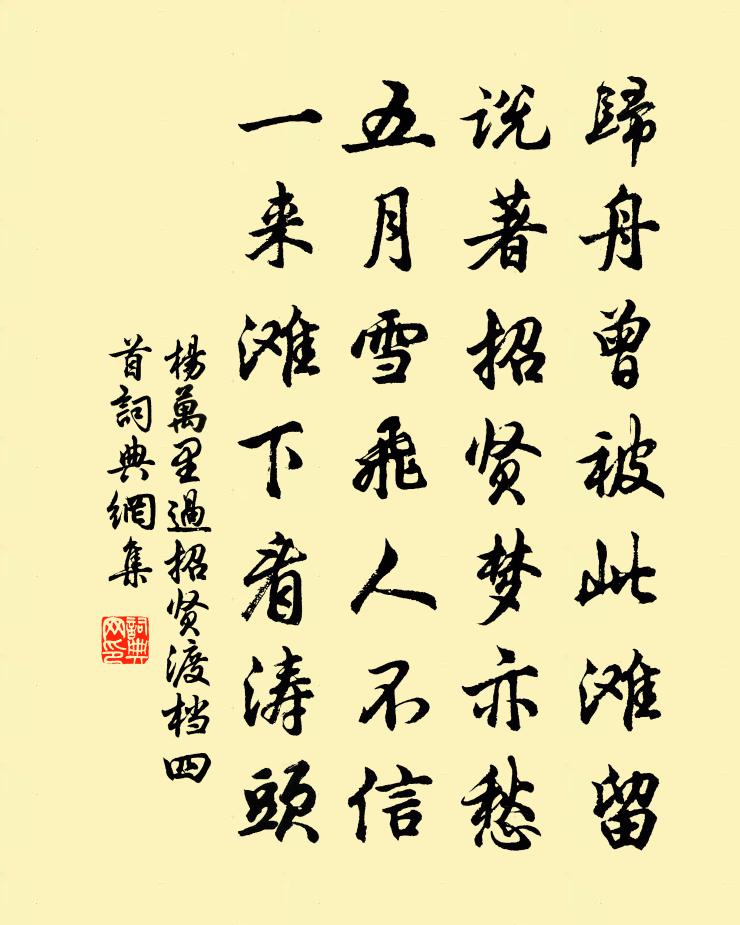 歸舟曾被此滩留
説著招贤梦亦愁
五月雪飛人不信
一来滩下看涛頭
楊萬里過招贤渡档四
首詞典網集
詞典网印